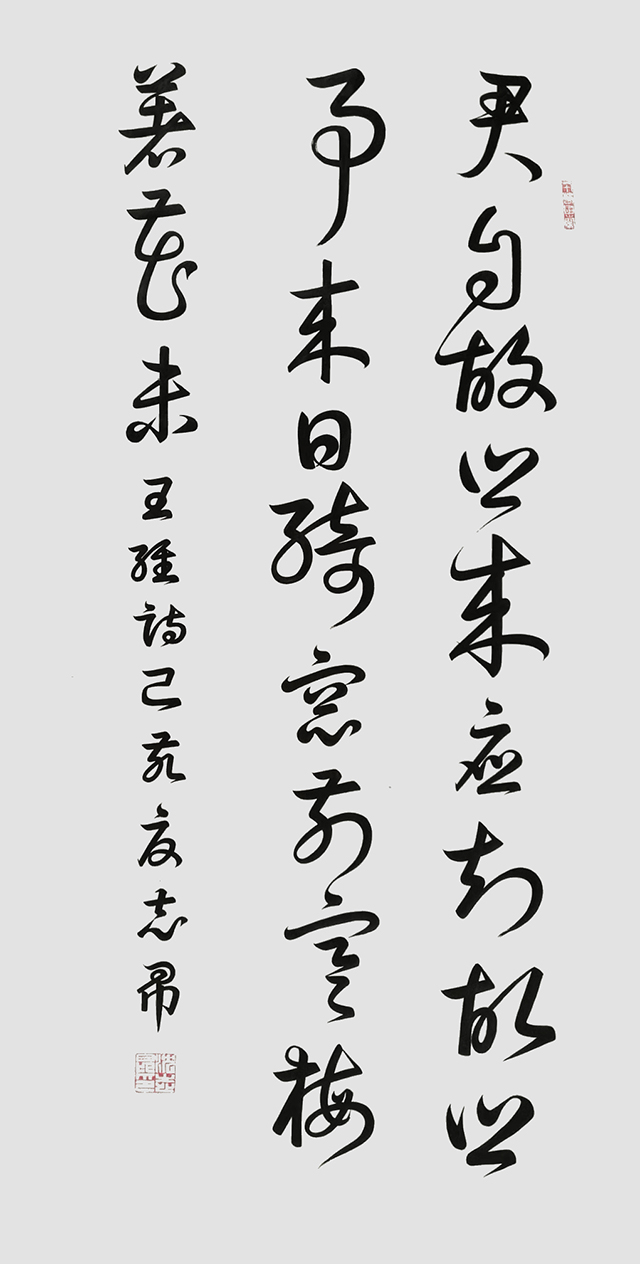 君自故乡来应知故乡
事来日绮窗前寒梅
著花未 王维诗己亥夏志